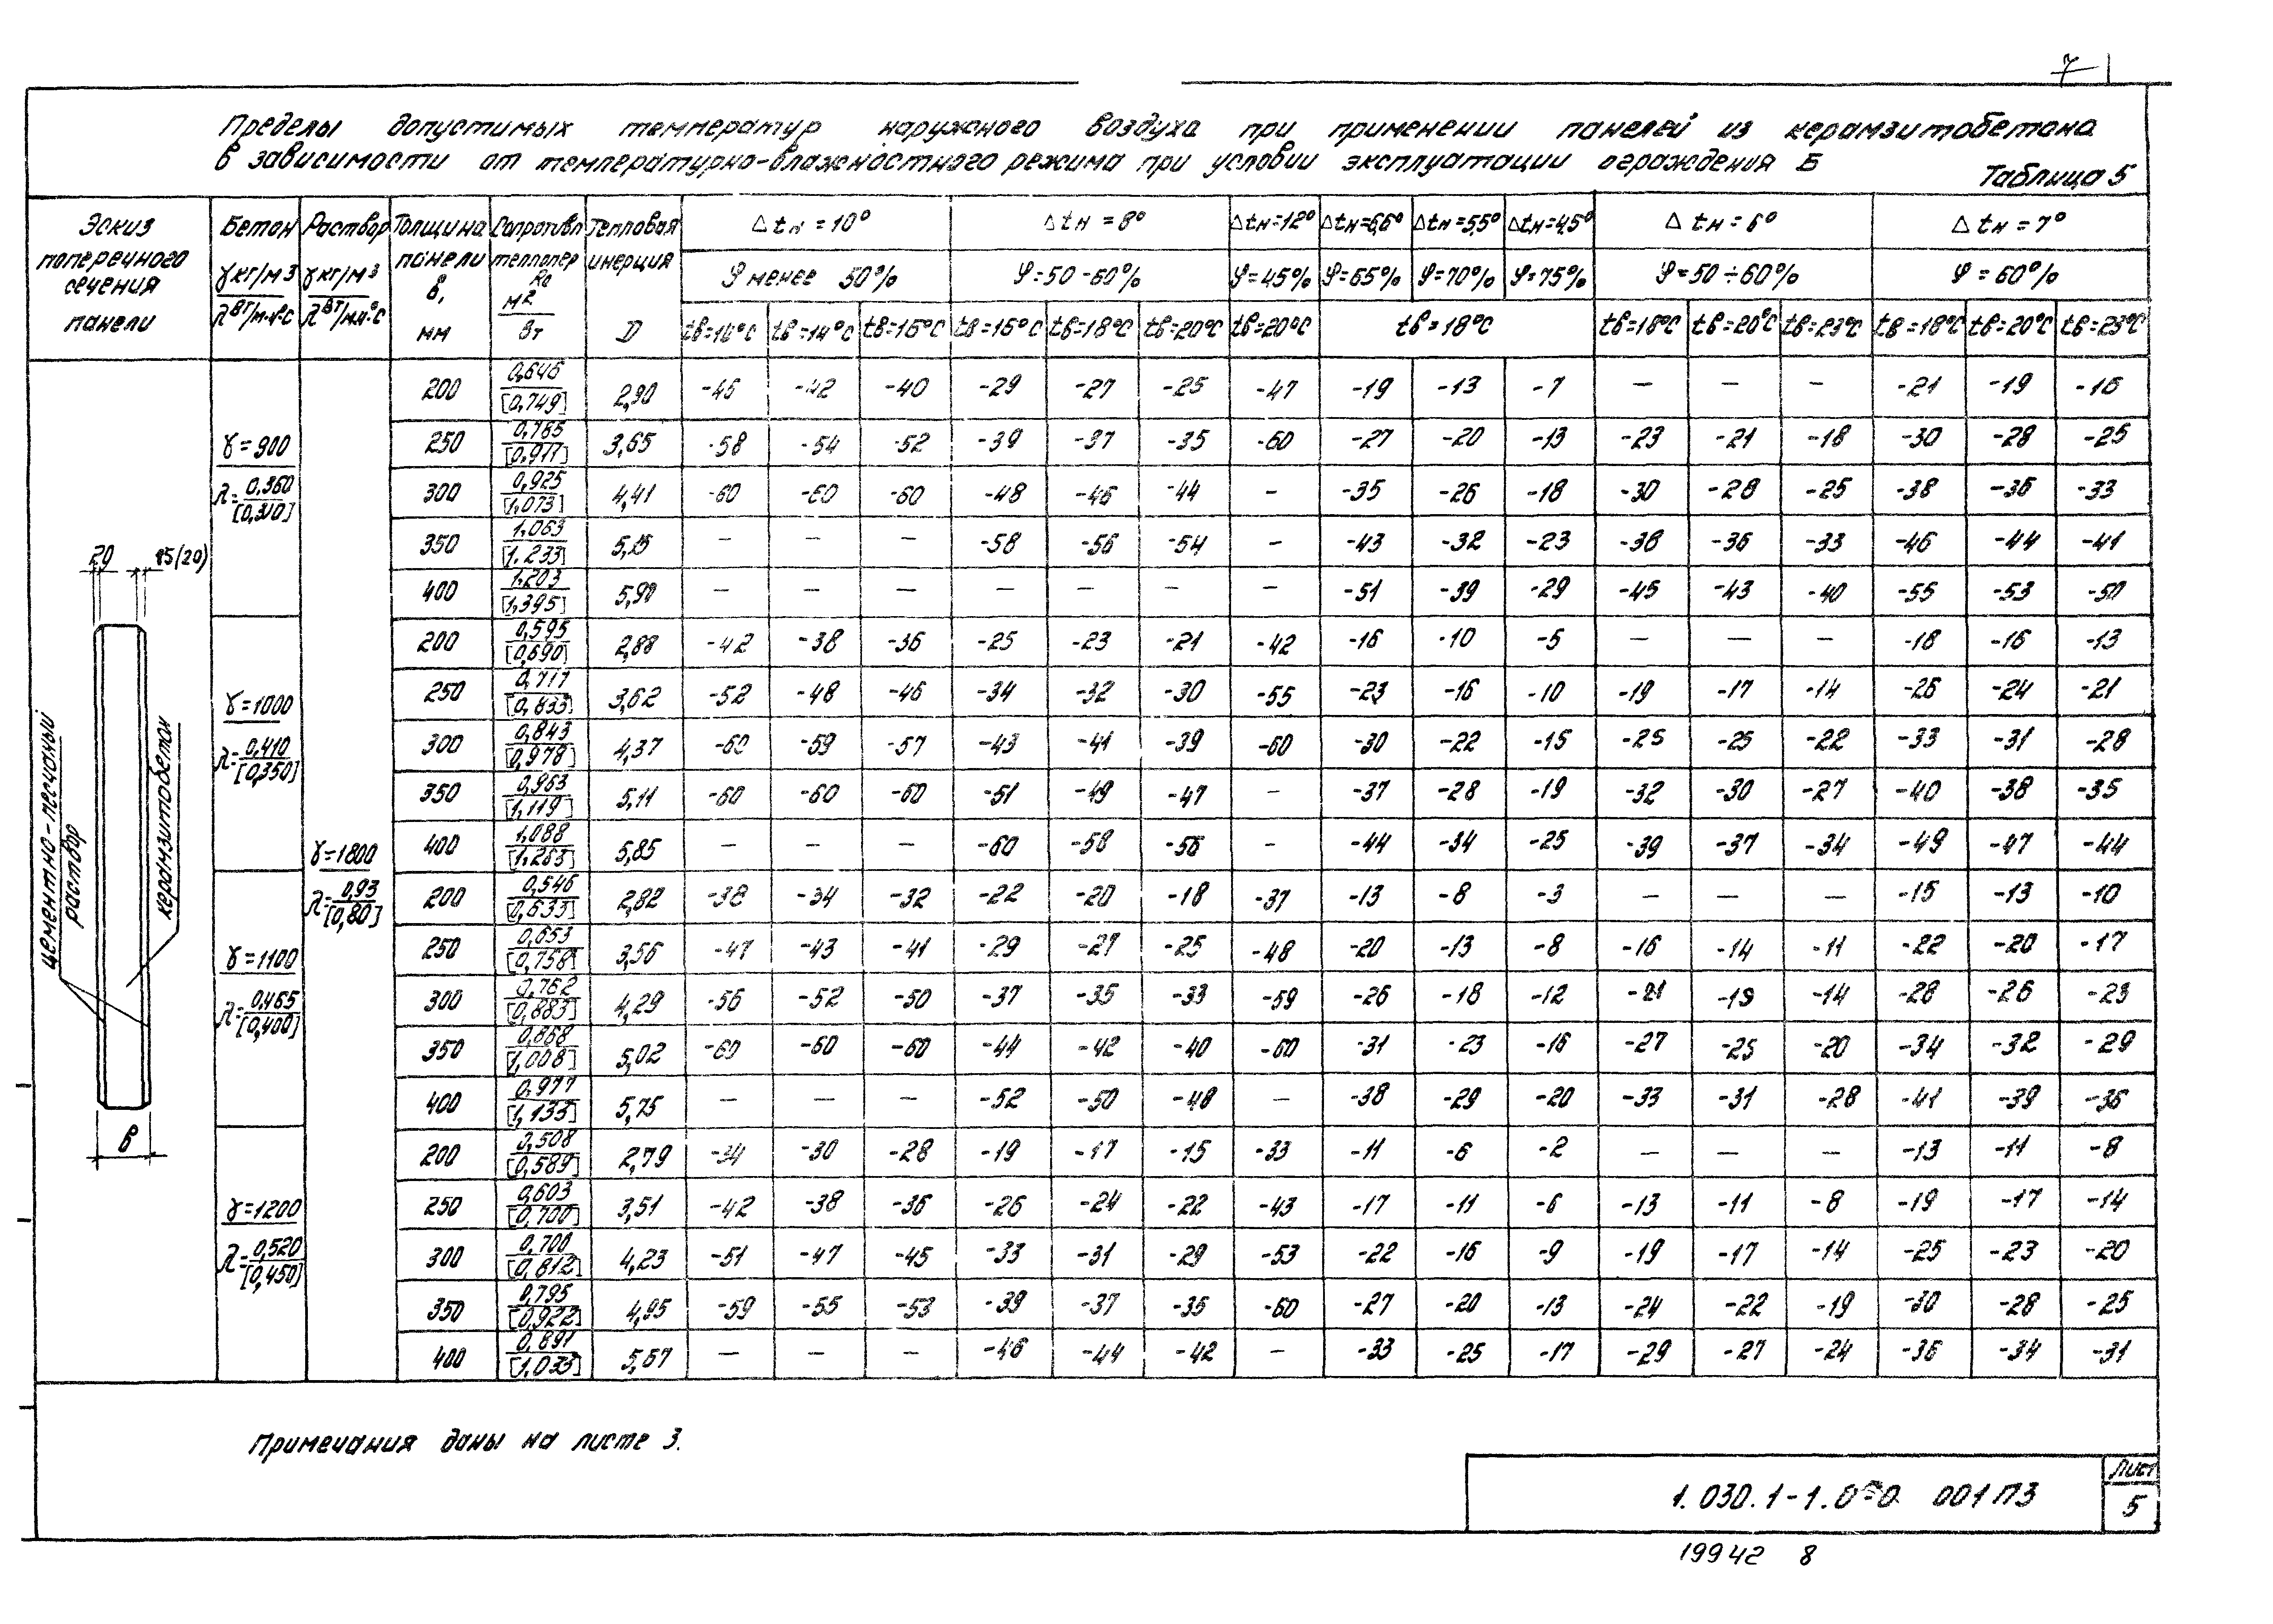 7
Пределы допустимых температур наружного воздуха при применении панелей из керамзитобетона
в зависимости от температурно-влажностного режима при условии эксплуатации ограждения Б
Таблица 5
Эскиз поперечного сечения панели
Бетон γкг/м3 λВт/м·ч°С
Раствор γкг/м3 λВт/м.ч°С
Толщина панели δ, мм
Сопротивл теплопер Ro м2 Вт
Тепловая инерция D
Δtн=10° Δtн=8° Δtн=12° Δtн=6,6° Δtн=5,5° Δtн=4,5° Δtн=6° Δtн=7°
φ менее 50% φ=50-60% φ=45% φ=65% φ=70% φ=75% φ=50÷60% φ=60%
tв=12°С tв=14°С tв=16°С tв=16°С tв=18°С tв=20°С tв=20°С tв=18°С tв=18°С tв=20°С tв=23°С tв=18°С tв=20°С tв=23°С
20 15(20)
цементно-песчаный раствор
керамзитобетон
в
γ=1800
λ=0,93/[0,80]
γ=900
λ=0,360/[0,310]
200 0,646/[0,749] 2,90 -46 -42 -40 -29 -27 -25 -47 -19 -13 -7 — — — -21 -19 -16
250 0,765/[0,977] 3,65 -58 -54 -52 -39 -37 -35 -60 -27 -20 -13 -23 -21 -18 -30 -28 -25
300 0,925/[1.073] 4,41 -60 -60 -60 -48 -46 -44 — -35 -26 -18 -30 -28 -25 -38 -36 -33
350 1.063/[1.233] 5,15 — — — -58 -56 -54 — -43 -32 -23 -38 -36 -33 -46 -44 -41
400 1.203/[1,395] 5,90 — — — — — — — -51 -39 -29 -45 -43 -40 -55 -53 -50
γ=1000
λ=0,410/[0,350]
200 0,595/[0,690] 2,88 -42 -38 -36 -25 -23 -21 -42 -16 -10 -5 — — — -18 -16 -13
250 0,717/[0,833] 3,62 -52 -48 -46 -34 -32 -30 -55 -23 -16 -10 -19 -17 -14 -26 -24 -21
300 0,843/[0,978] 4,37 -60 -59 -57 -43 -41 -39 -60 -30 -22 -15 -25 -25 -22 -33 -31 -28
350 0,963/[1,119] 5,11 -60 -60 -60 -51 -49 -47 — -37 -28 -19 -32 -30 -27 -40 -38 -35
400 1,088/[1.263] 5,85 — — — -60 -58 -56 — -44 -34 -25 -39 -37 -34 -49 -47 -44
γ=1100
λ=0,465/[0,400]
200 0,546/[0,633] 2,82 -38 -34 -32 -22 -20 -18 -37 -13 -8 -3 — — — -15 -13 -10
250 0,653/[0,758] 3,56 -47 -43 -41 -29 -27 -25 -48 -20 -13 -8 -16 -14 -11 -22 -20 -17
300 0,762/[0,883] 4,29 -56 -52 -50 -37 -35 -33 -59 -26 -18 -12 -21 -19 -14 -28 -26 -23
350 0,868/[1,008] 5,02 -60 -60 -60 -44 -42 -40 -60 -31 -23 -16 -27 -25 -20 -34 -32 -29
400 0,977/[1,133] 5,75 — — — -52 -50 -48 — -38 -29 -20 -33 -31 -28 -41 -39 -36
γ=1200
λ=0,520/[0,450]
200 0,508/[0,589] 2,79 -34 -30 -28 -19 -17 -15 -33 -11 -6 -2 — — — -13 -11 -8
250 0,603/[0,700] 3,51 -42 -38 -36 -26 -24 -22 -43 -17 -11 -6 -13 -11 -8 -19 -17 -14
300 0,700/[0,812] 4,23 -51 -47 -45 -33 -31 -29 -53 -22 -16 -9 -19 -17 -14 -25 -23 -20
350 0,795/[0,922] 4,95 -59 -55 -53 -39 -37 -35 -60 -27 -20 -13 -24 -22 -19 -30 -28 -25
400 0,891/[1.033] 5,67 — — — -46 -44 -42 — -33 -25 -17 -29 -27 -24 -36 -34 -31
Примечания даны на листе 3.
1.030.1-1.0-0 001ПЗ
Лист
5
19942 8